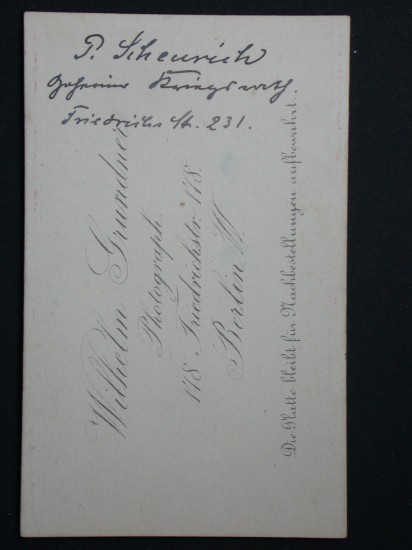 P. Scheurich
Geheimer Kriegsrath
Friedrichs St. 231.
Wilhelm Grundner
Photograph.
178. Friedrichstr. 178.
Berlin W.
Die Platte bleibt für Nachbestellungen aufbewahrt.